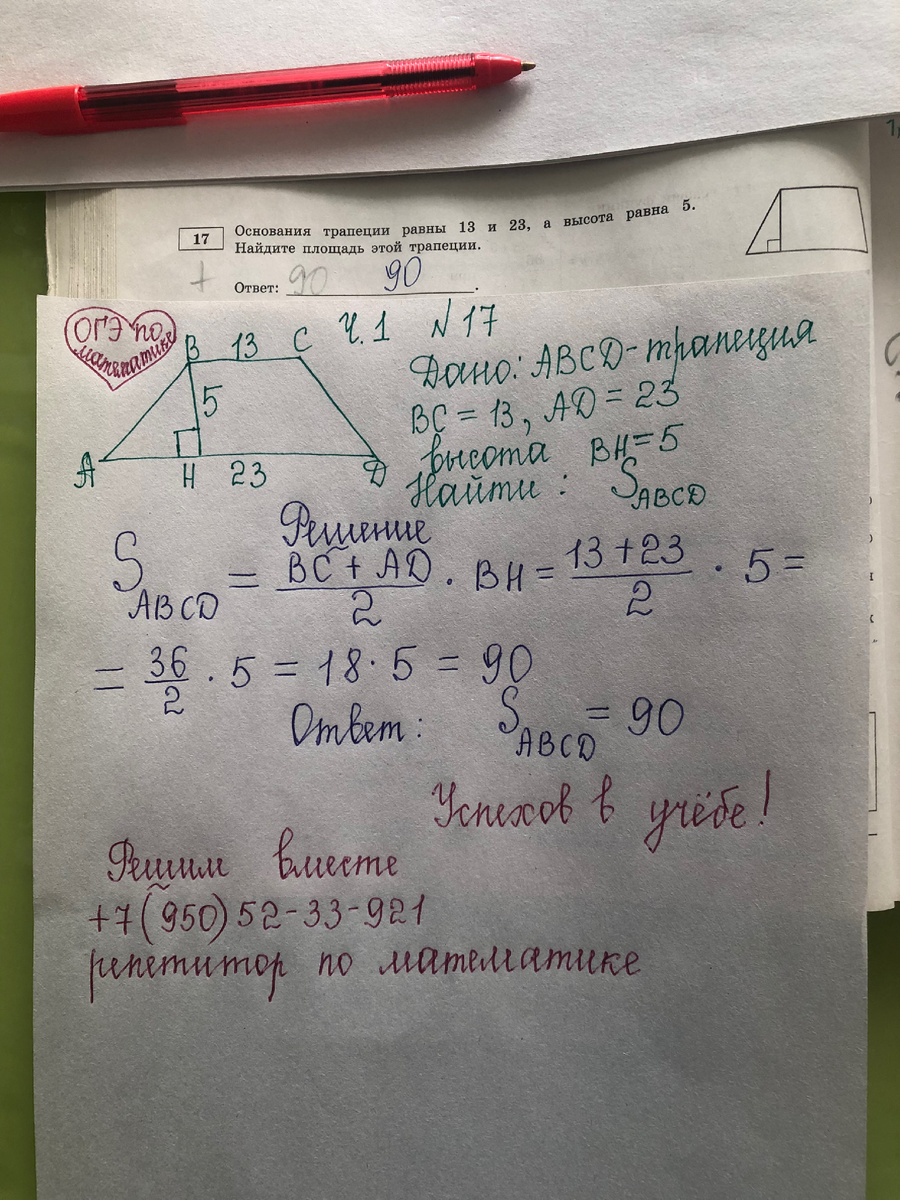 17
Основания трапеции равны 13 и 23, а высота равна 5.
Найдите площадь этой трапеции.
+ Ответ: 90 90.
ОГЭ по
математике
Ч.1 №17
B 13 C
5
A H 23 D
Дано: ABCD-трапеция
BC = 13, AD = 23
высота BH = 5
Найти: S_ABCD
Решение
S_ABCD = (BC + AD)/2 · BH = (13 + 23)/2 · 5 =
= 36/2 · 5 = 18 · 5 = 90
Ответ: S_ABCD = 90
Успехов в учёбе!
Решим вместе
+7(950)52-33-921
репетитор по математике